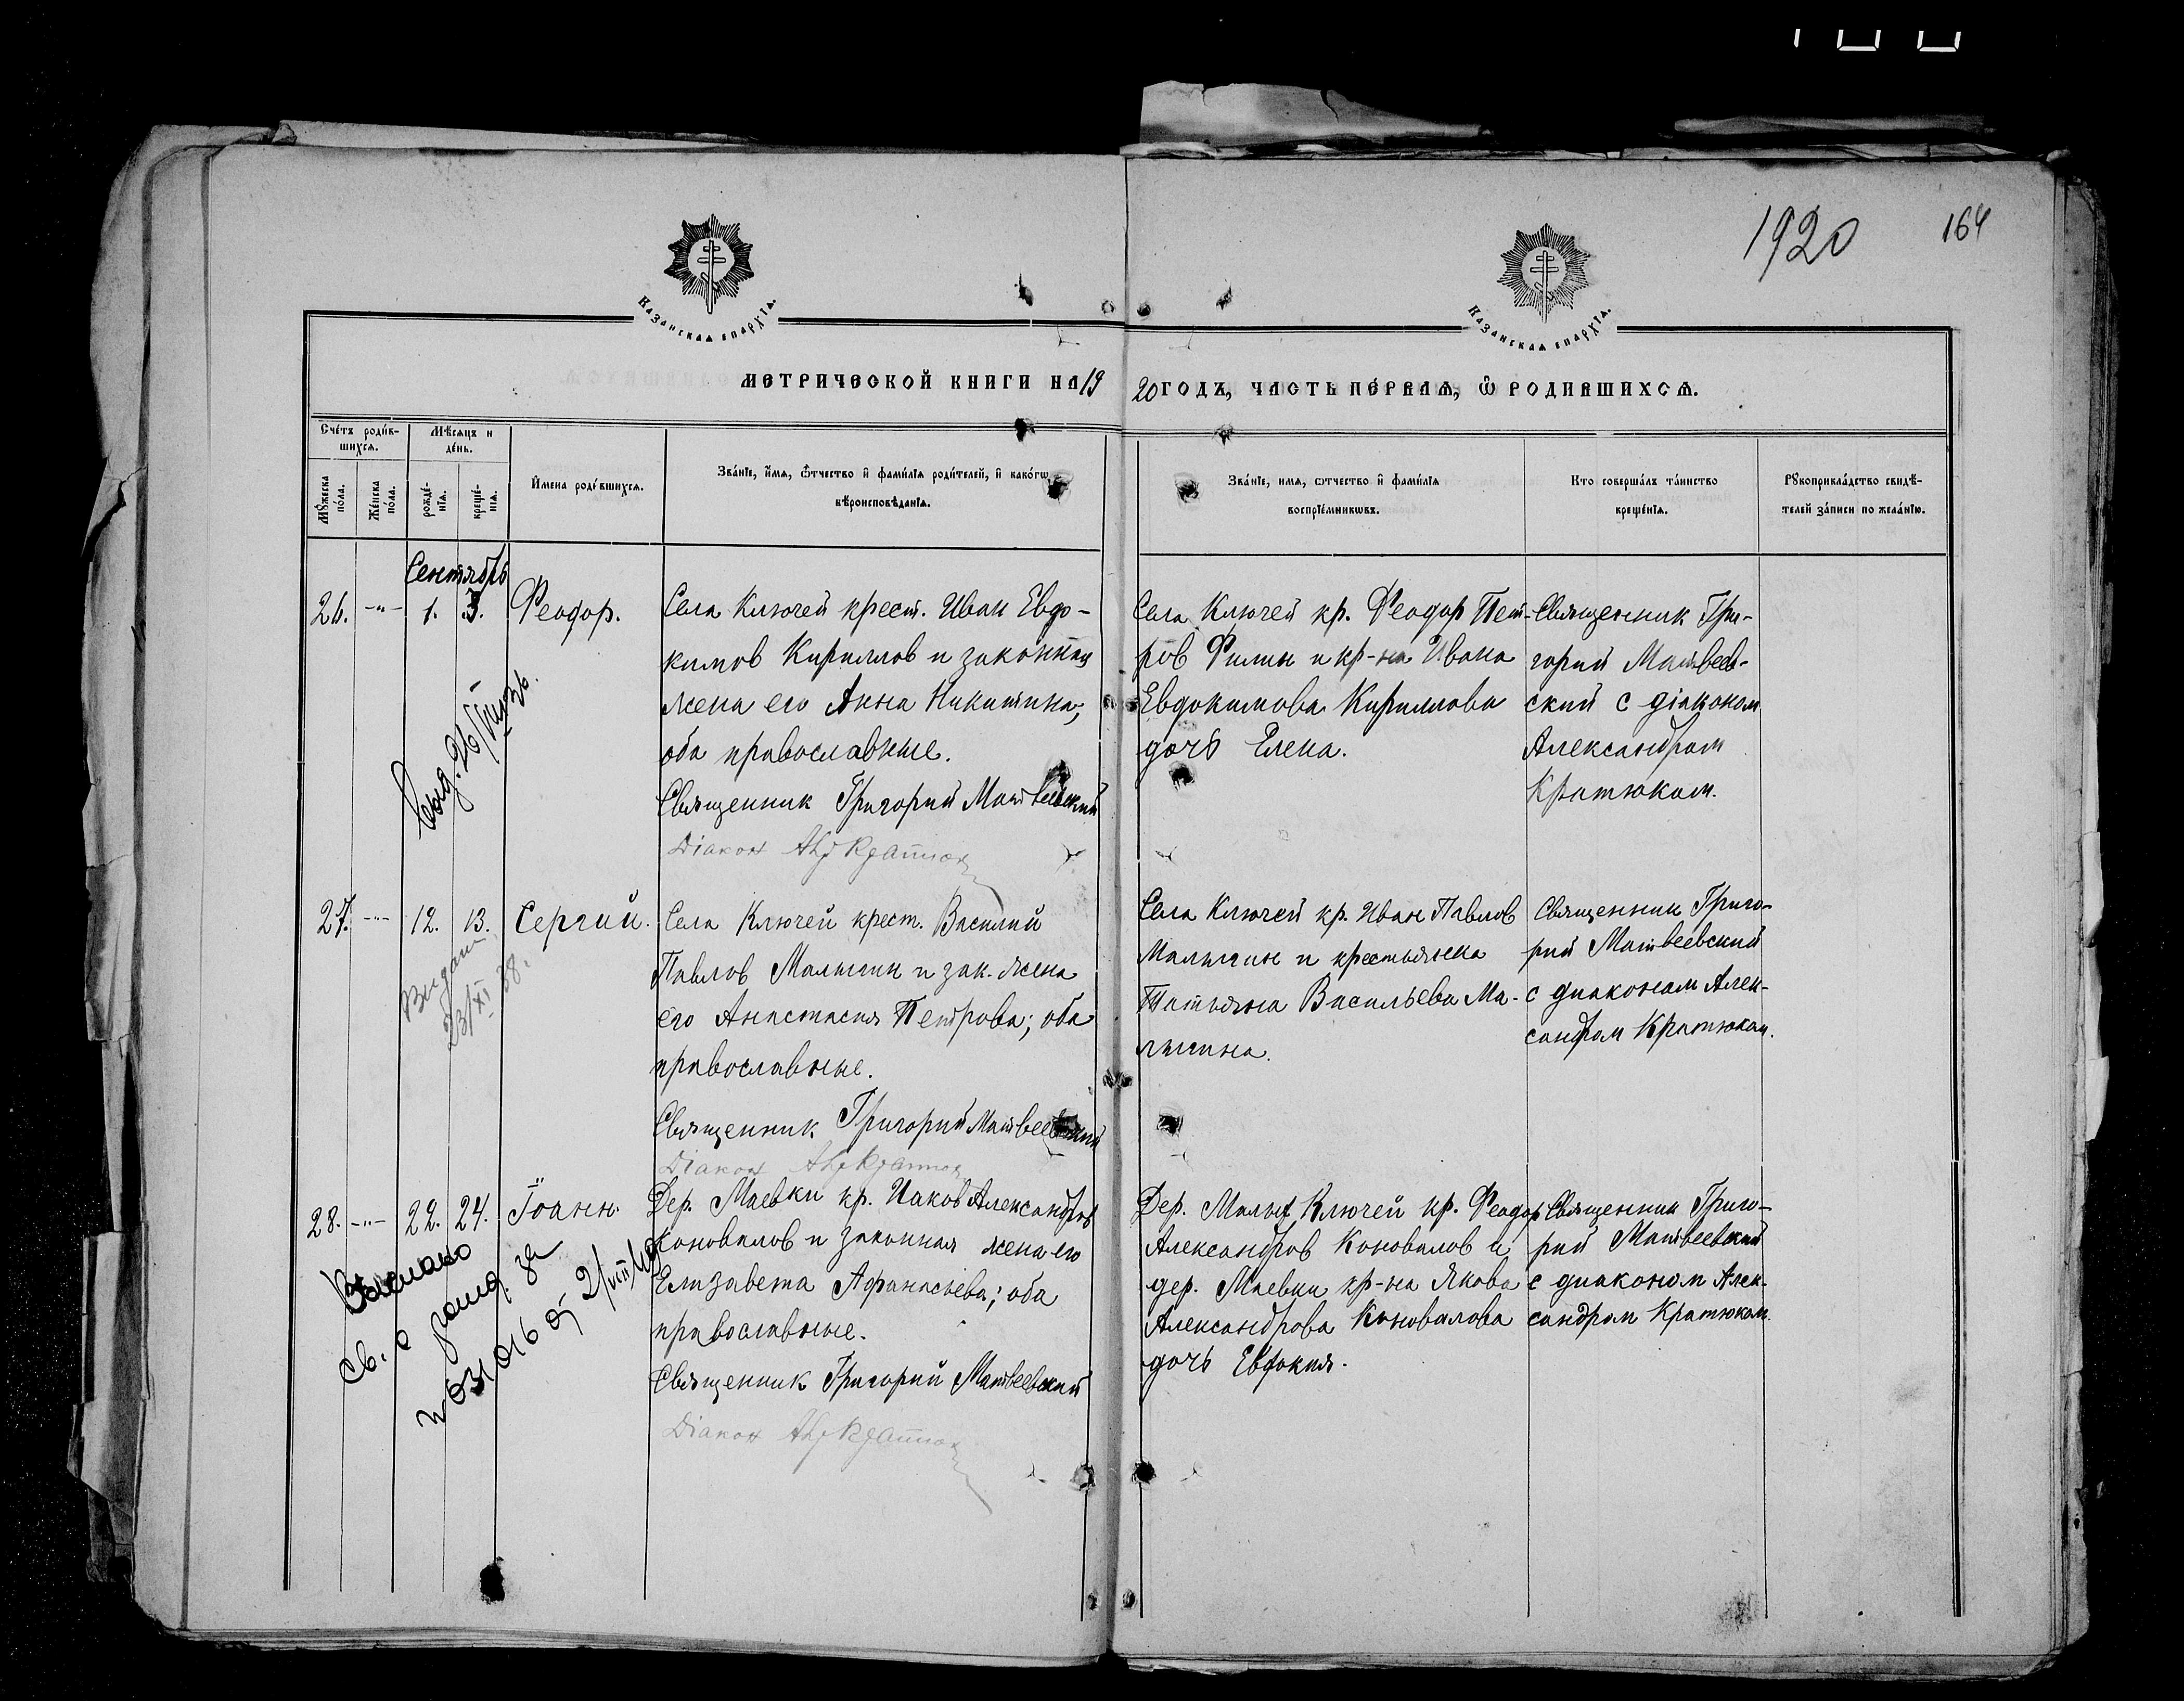 1920
164
Казанская епархїѧ.
Казанская епархїѧ.
МЕТРИЧЕСКОЙ КНИГИ НА 19
20 ГОДЪ, ЧАСТЬ ПЕ́РВАѦ, Ѡ РОДИВШИХСѦ.
Сче́тъ роди́в-
шихсѧ.
Мѣ́сѧцъ и
де́нь.
Мꙋ́жеска
по́ла.
Же́нска
по́ла.
рожде́-
нїѧ.
креще́-
нїѧ.
И҆мена роди́вшихсѧ.
Зва́нїе, и҆́мѧ, ѻ҆́тчество и҆ фами́лїѧ роди́телей, и҆ како́гѡ
вѣроисповѣ́данїѧ.
Зва́нїе, имѧ, ѻтчество и҆ фами́лїѧ
воспрїе́мникѡвъ.
Кто соверша́лъ та́инство
креще́нїѧ.
Рꙋкоприкла́дство свидѣ́-
телей за́писи по жела́нїю.
Сентябрь
26. -"- 1. 3. Феодор.
Села Ключей крест. Иван Евдо-
кимов Кириллов и законная
жена его Анна Никитина;
оба православные.
Священник Григорий Матвеевский
Дiакон
Села Ключей кр. Феодор Пет-
ров Филин и кр-на Ивана
Евдокимова Кириллова
дочь Елена.
Священник Гри-
горий Матвеев-
ский с дiаконом
Александром
Кратюком.
27. -"- 12. 13. Сергий.
Выдан
23/XI 38.
Села Ключей крест. Василий
Павлов Малыгин и зак. жена
его Анастасия Петрова; оба
православные.
Священник Григорий Матвеевский
Дiакон
Села Ключей кр. Иван Павлов
Малыгин и крестьянка
Татьяна Васильева Ма-
лыгина.
Священник Григо-
рий Матвеевский
с диаконом Алек-
сандром Кратюком.
28. -"- 22. 24. Iоанн.
св. о рожд. за
Дер. Маевки кр. Иаков Александров
Коновалов и законная жена его
Елизавета Афанасьева; оба
православные.
Священник Григорий Матвеевский
Дiакон
Дер. Малых Ключей кр. Феодор
Александров Коновалов и
дер. Маевки кр-на Якова
Александрова Коновалова
дочь Евдокия.
Священник Григо-
рий Матвеевский
с диаконом Алек-
сандром Кратюком.